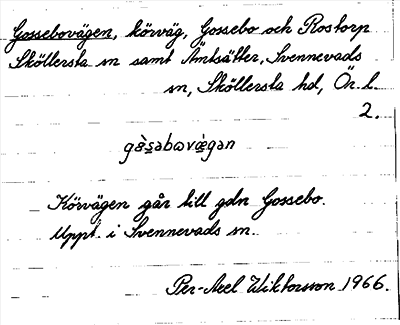 Gossebovägen, körväg, Gossebo och Rostorp
Sköllersta sn samt Ämtsätter, Svennevads
sn, Sköllersta hd, Ör. l.
2.
Körvägen går till gdn Gossebo.
Uppt. i Svennevads sn.
Per-Axel Wiktorsson 1966.